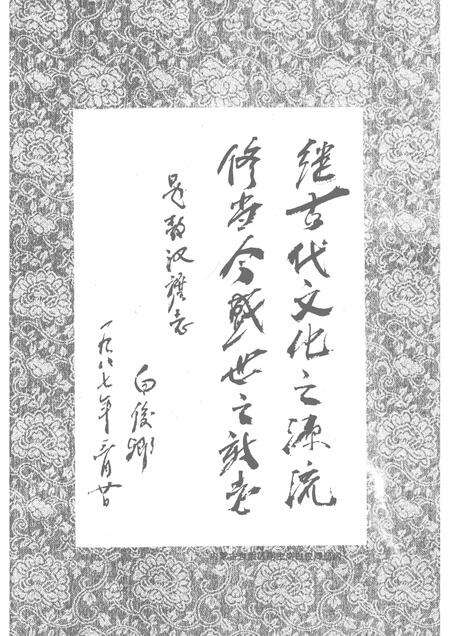 继古代文化之源流
修当今盛世之新志
题敖汉旗志
白俊卿
一九八七年三月廿日